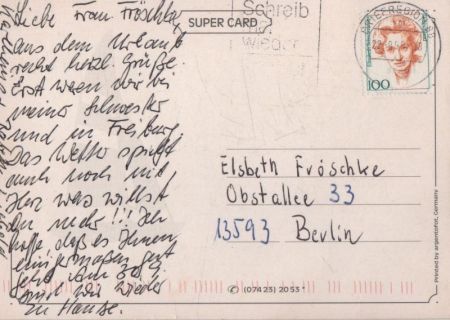 SUPER CARD
Schreib
mal
wieder
BRIEFREGION
100
Liebe Frau Fröschke,
aus dem Urlaub
recht herzl. Grüße.
Erst waren wir bei
meiner Schwester
und in Freiburg.
Das Wetter spielt
auch noch mit,
Herz was willst
du mehr!!! Ich
hoffe daß es Ihnen
einigermaßen gut
geht. Am 30.9.
sind wir wieder
zu Hause.
Elsbeth Fröschke
Obstallee 33
13593 Berlin
Printed by argentohot, Germany
✆ (07423) 2053*